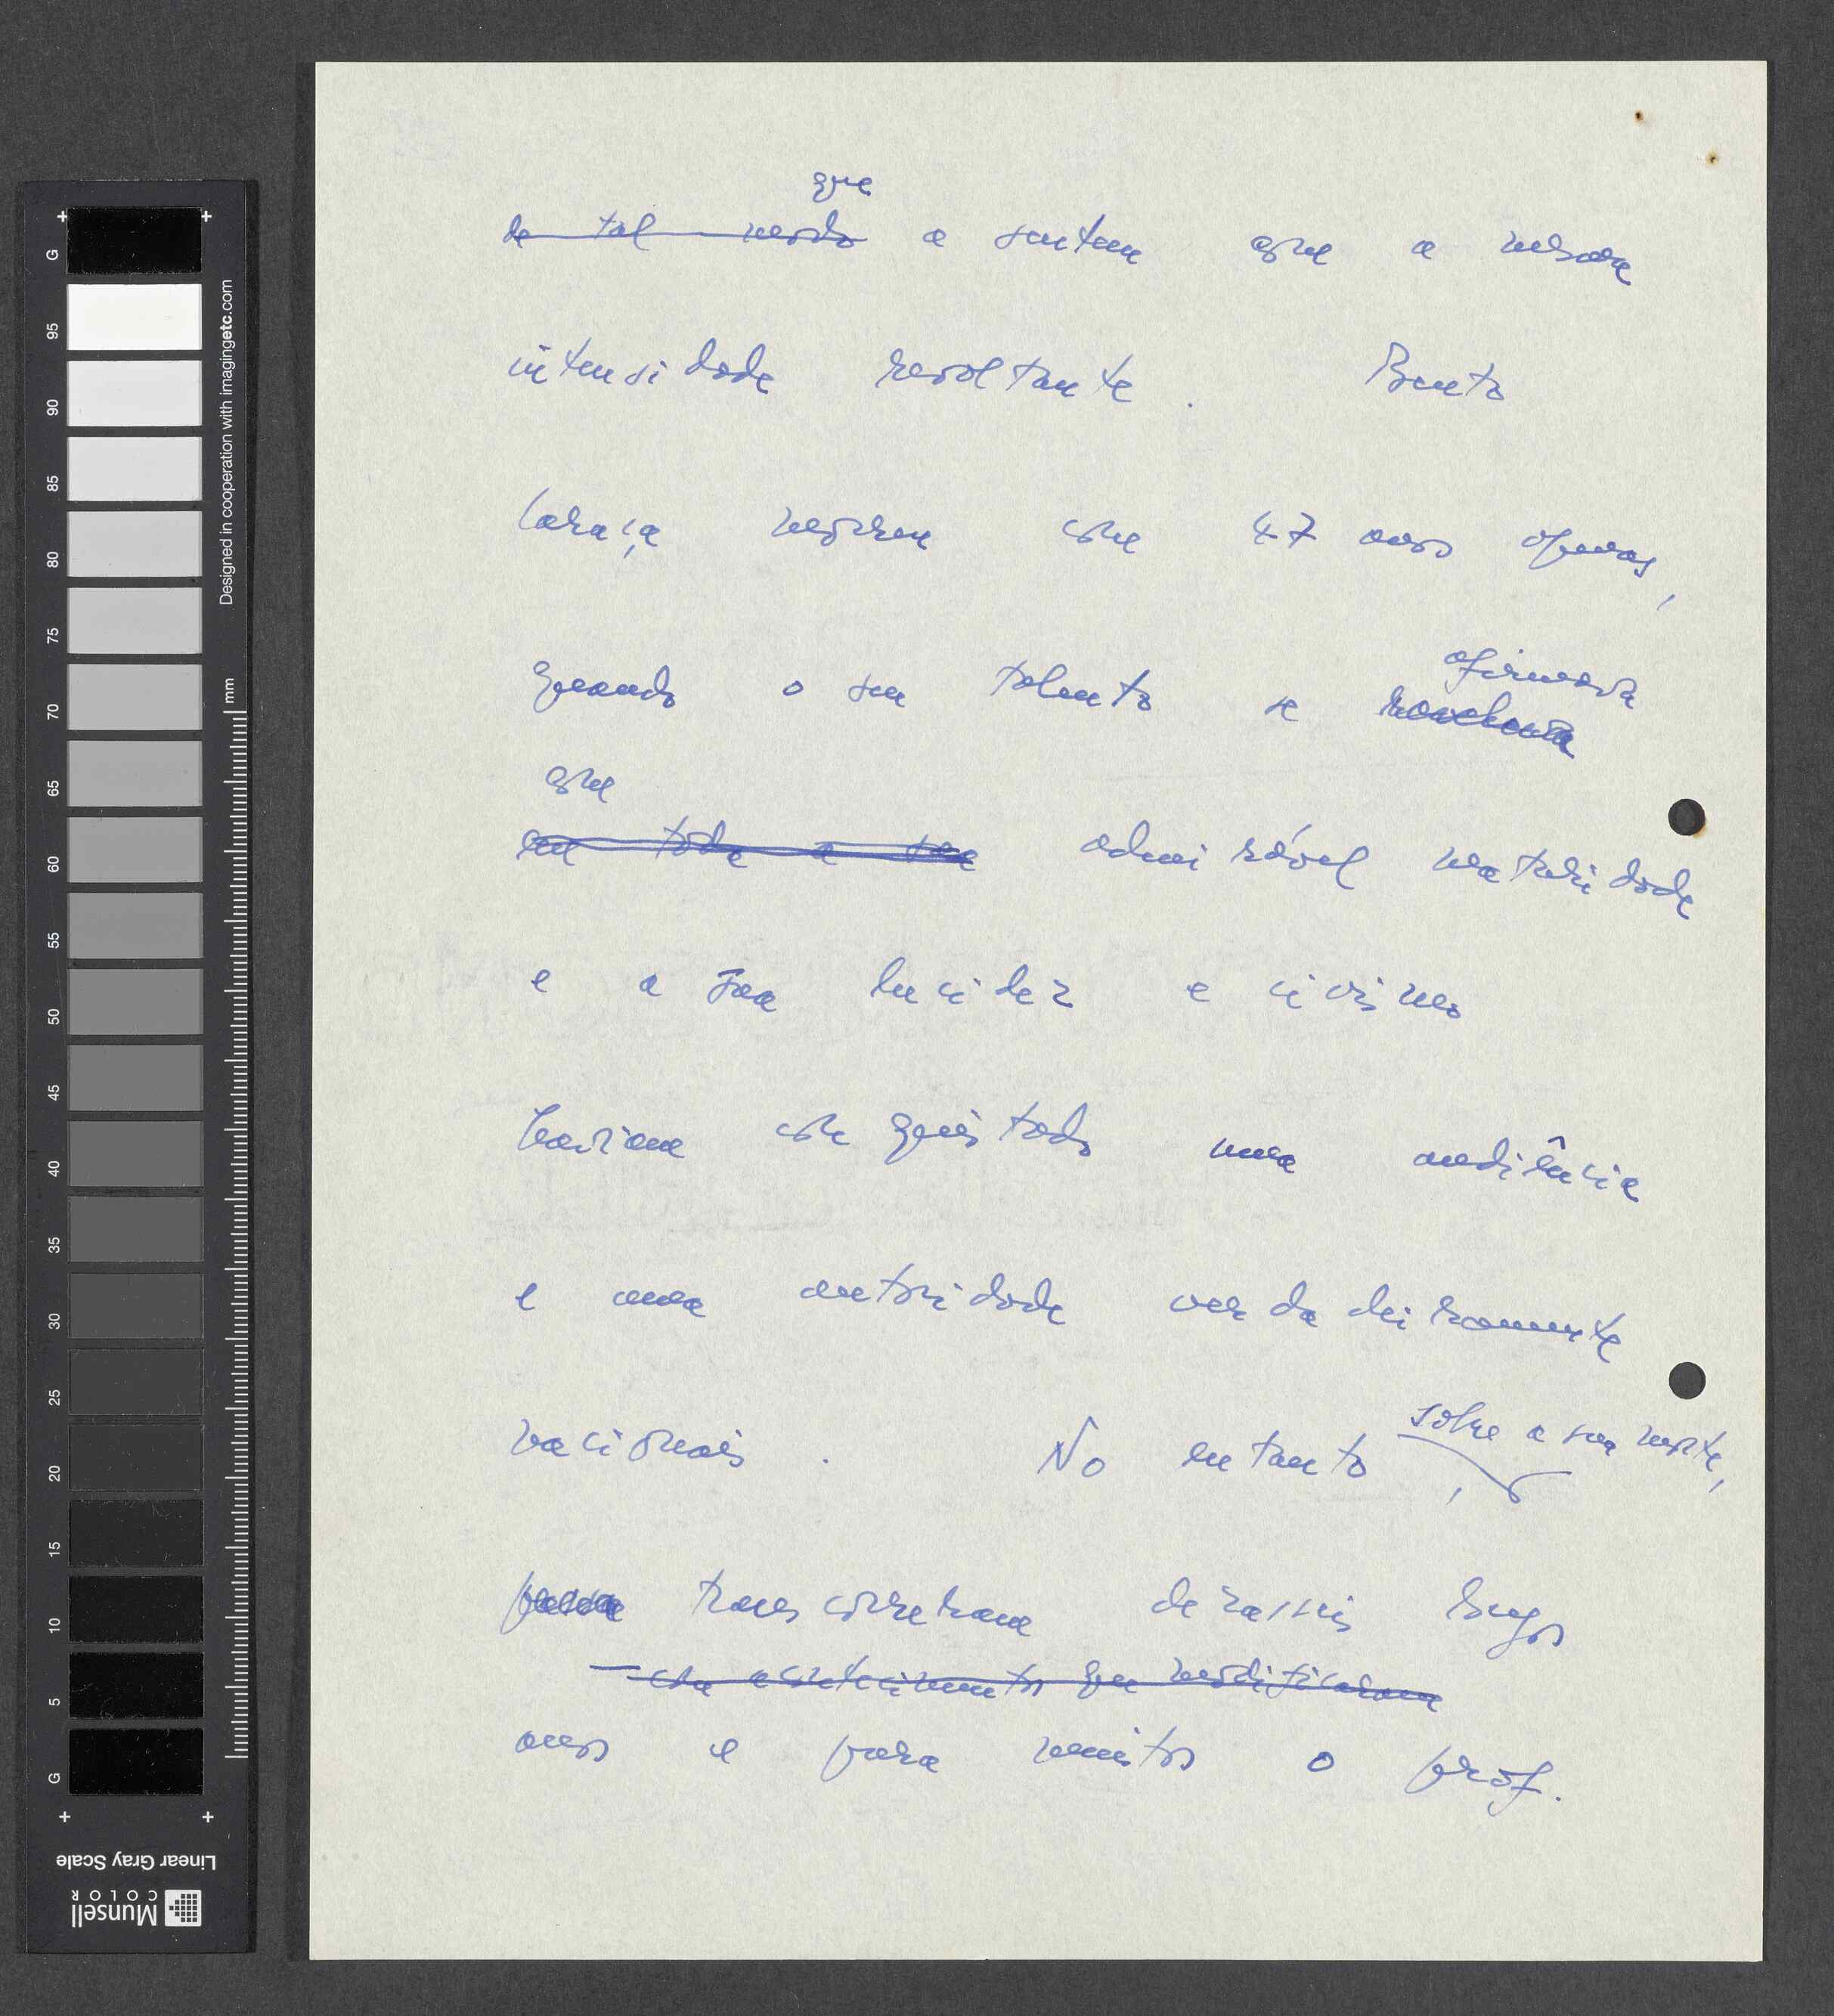 que
de tal modo a sentem com a mesma
intensidade revoltante. Bento
Caraça morreu com 47 anos apenas,
afirmava
quando o seu talento se
com
em toda a sua admirável maturidade
e a sua lucidez e civismo
haviam conquistado uma audiência
e uma autoridade verdadeiramente
nacionais. No entanto, sobre a sua morte,
transcorreram dezasseis longos
com acontecimentos que modificaram
anos e para muitos o prof.
G
95
90
85
80
75
70
65
60
55
50
45
40
35
30
25
20
15
10
5
G
mm
Designed in cooperation with imagingetc.com
Linear Gray Scale
Munsell
COLOR